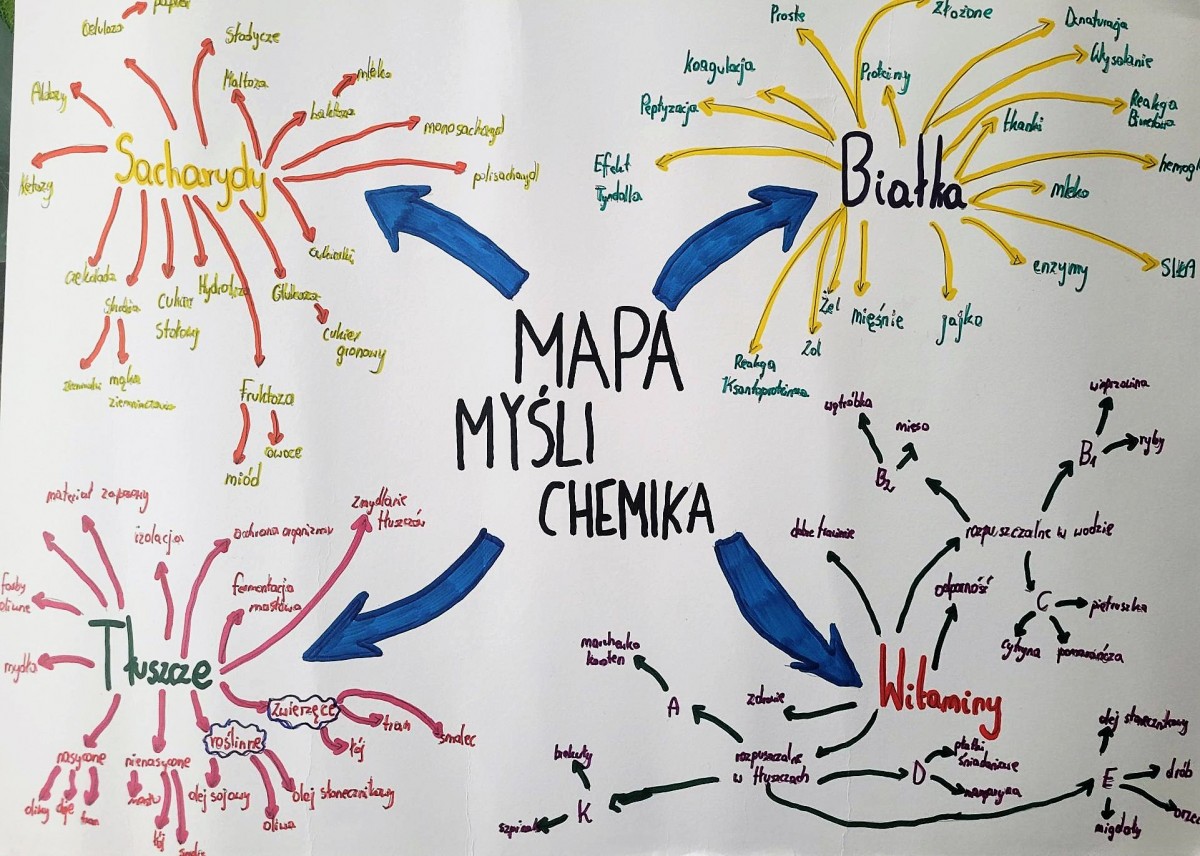 MAPA
MYŚLI
CHEMIKA
Sacharydy
Celuloza
papier
Słodycze
Maltoza
laktoza
mleko
monosacharyd
polisacharyd
Aldozy
Ketozy
czekolada
Skrobia
ziemniaki
mąka
ziemniaczana
cukier
stołowy
Hydroliza
Glukoza
cukier
gronowy
Fruktoza
miód
owoce
Białka
Proste
Złożone
Denaturacja
Wysalanie
Proteiny
Koagulacja
Peptyzacja
Reakcja
Biuretowa
tkanki
Efekt
Tyndalla
mleko
enzymy
Żel
Zol
mięśnie
jajko
Reakcja
Ksantoproteinowa
Tłuszcze
materiał zapasowy
izolacja
ochrona organizmu
Zmydlanie
tłuszczów
fermentacja
masłowa
farby
mydła
Zwierzęce
tran
smalec
łój
roślinne
olej sojowy
olej słonecznikowy
oliwa
nasycone
oliwy
tran
nienasycone
masło
łój
Witaminy
dobre trawienie
odporność
zdrowie
rozpuszczalne w wodzie
B₂
wątróbka
mięso
B₁
wieprzowina
ryby
C
pietruszka
cytryna
pomarańcza
rozpuszczalne
w tłuszczach
A
K
brokuły
szpinak
D
płatki
śniadaniowe
E
olej słonecznikowy
drób
migdały